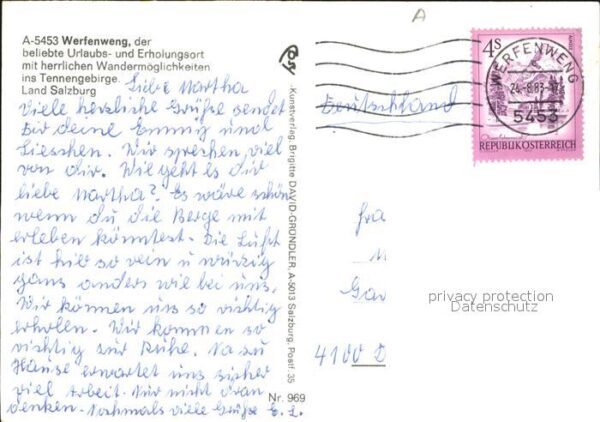 A
A-5453 Werfenweng, der
beliebte Urlaubs- und Erholungsort
mit herrlichen Wandermöglichkeiten
ins Tennengebirge.
Land Salzburg
Liebe Martha
Viele herzliche Grüße sendet
Dir deine Emmy und
Lieschen. Wir sprechen viel
von dir. Wie geht es dir
liebe Martha? Es wäre schön
wenn du die Berge mit
erleben könntest. Die Luft
ist hier so rein u würzig
ganz anders wie bei uns.
Wir können uns so richtig
erholen. Wir kommen so
richtig zur Ruhe. Na zu
Hause erwartet uns sicher
viel Arbeit. Nur nicht dran
denken. Nochmals viele Grüße E. L.
Nr. 969
Kunstverlag Brigitte DAVID-GRÜNDLER, A-5013 Salzburg, Postf. 35
4 S
REPUBLIK ÖSTERREICH
WERFENWENG
24.-8.83
5453
Deutschland
Fra
M
Gar
4100 D
privacy protection
Datenschutz